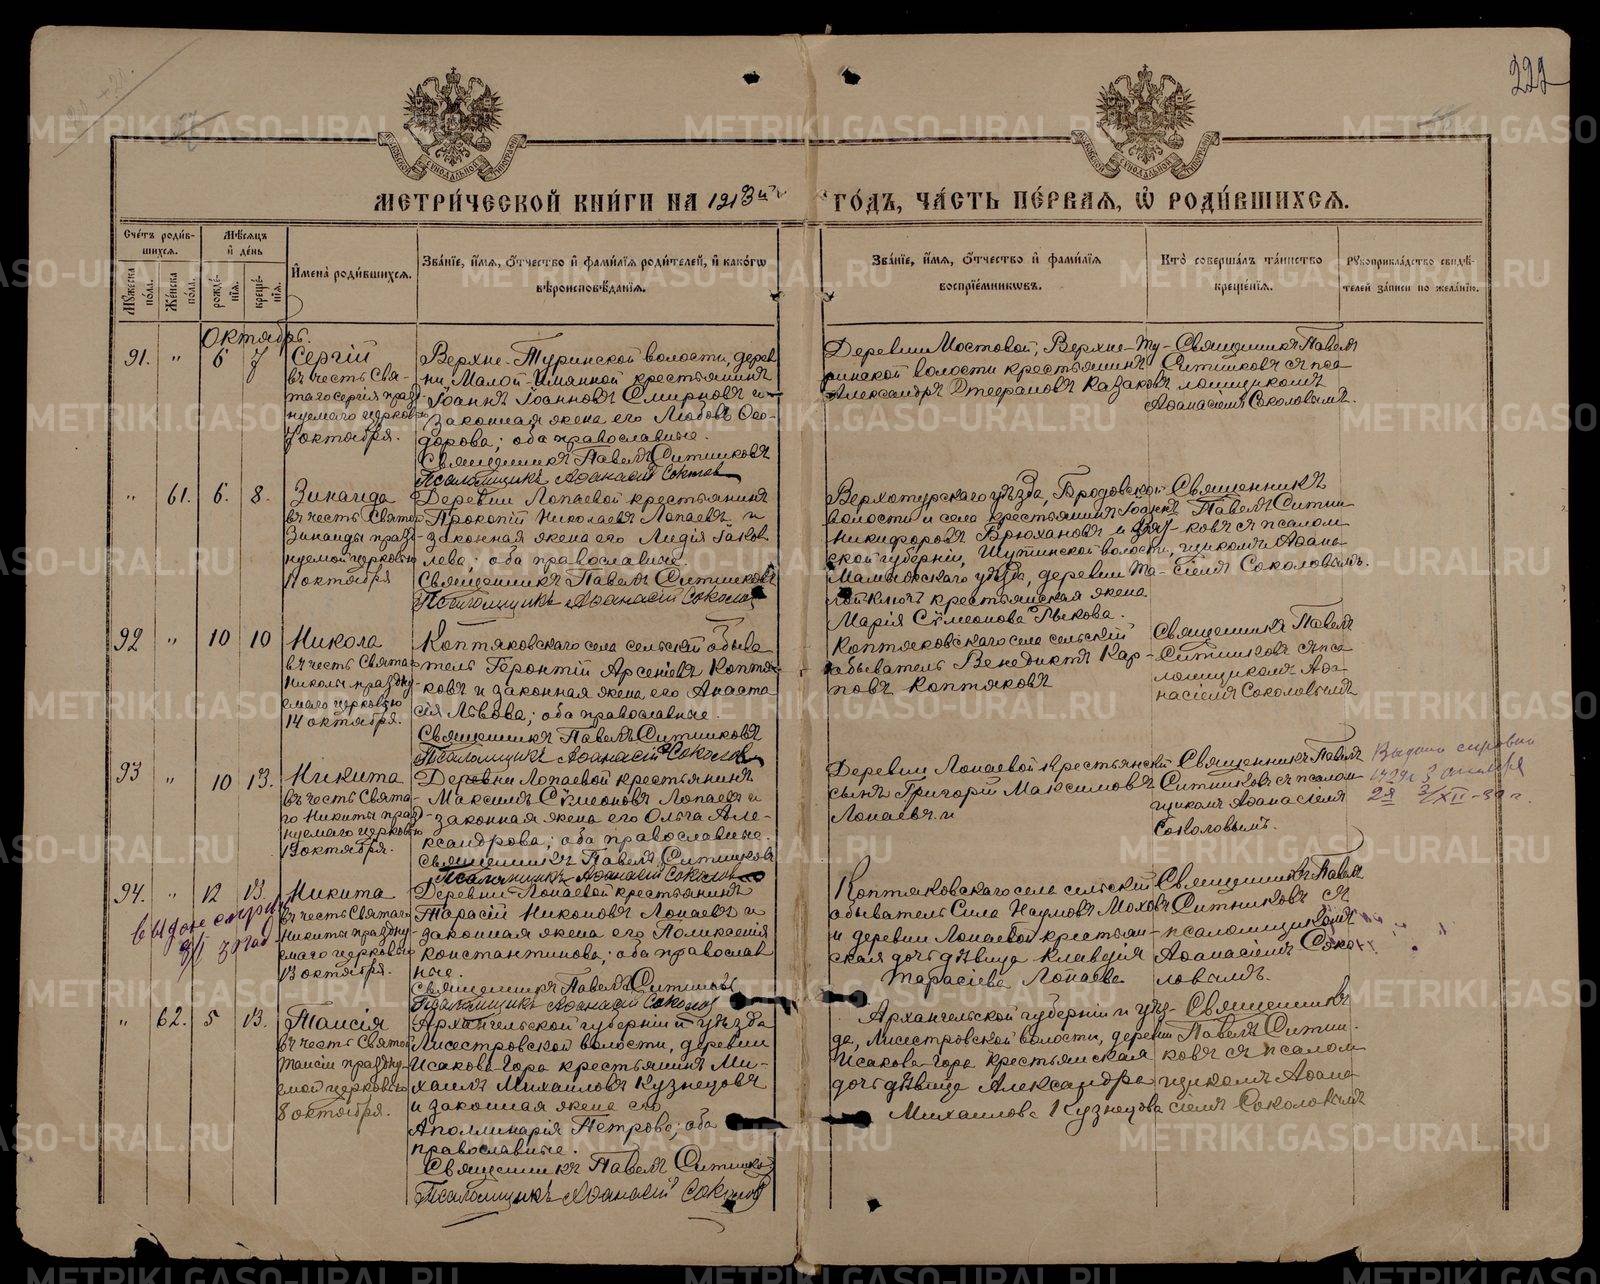 222
МЕТРИ́ЧЕСКОЙ КНИ́ГИ НА 1913й
ГО́ДЪ, ЧА́СТЬ ПЕ́РВАѦ, Ѽ РОДИ́ВШИХСѦ.
Сче́тъ роди́в-
шихсѧ.
Мѣ́сѧцъ
и҆ де́нь
Мꙋ́жеска по́ла.
Же́нска по́ла.
рожде́-нїѧ.
креще́-нїѧ.
И҆мена̀ роди́вшихсѧ.
Зва́нїе, и҆́мѧ, ѻ҆́тчество и҆ фами́лїѧ роди́телей, и҆ како́гѡ
вѣроисповѣ́данїѧ.
Зва́нїе, и҆́мѧ, ѻ҆́тчество и҆ фами́лїѧ
воспрїе́мникѡвъ.
Кто̀ соверша́лъ та́инство
креще́нїѧ.
Рꙋкоприкла́дство свидѣ́-
телей за́писи по жела́нїю.
Октябрь.
91. " 6 7
Сергій
въ честь Свя-
таго Сергія празд-
нуемаго церковью
7 октября.
Верхне-Туринской волости, дерев
ни, Малой-Именной крестьянинъ
Іоаннъ Іоанновъ Смирновъ и
законная жена его Любовь Ѳео-
дорова; оба православные.
Священникъ Павелъ Ситниковъ
Псаломщикъ Аѳанасій Соколов
Деревни Мостовой, Верхне-Ту-
ринской волости крестьянинъ
Александръ Стефановъ Казаковъ
Священникъ Павелъ
Ситниковъ съ пса
ломщикомъ
Аѳанасіемъ Соколовымъ.
" 61. 6. 8.
Зинаида
въ честь Святой
Зинаиды празд-
нуемой церковью
11 октября
Деревни Лопаевой крестьянинъ
Прокопій Николаевъ Лопаевъ и
законная жена его Лидія Іаков
лева; оба православные.
Священникъ Павелъ Ситниковъ
Псаломщикъ Аѳанасій Соколов
Верхотурскаго уѣзда, Бродовской
волости и села крестьянинъ Іоаннъ
Никифоровъ Брюхановъ и
ской губерніи, волости,
уѣзда, деревни
крестьянская жена
Марія Сѵмеонова
Священникъ
Павелъ Ситни
ковъ съ псалом
щикомъ Аѳана
сіемъ Соколовымъ.
92 " 10 10
Никола
въ честь Святаго
Николы праздну-
емаго церковью
14 октября.
Коптяковскаго села сельскій обыва
тель Геронтій Арсеніевъ Коптя-
ковъ и законная жена его Анаста
сія Львова; оба православные.
Священникъ Павелъ Ситниковъ
Псаломщикъ Аѳанасій Соколов
Коптяковскаго села сельскій
обыватель Венедиктъ Кар-
повъ Коптяковъ
Священникъ Павелъ
Ситниковъ съ пса
ломщикомъ Аѳа-
насіемъ Соколовымъ
93 " 10 13.
Никита
въ честь Свята-
го Никиты празд-
нуемаго церковью
13 октября.
Деревни Лопаевой крестьянинъ
Максимъ Сѵмеоновъ Лопаевъ и
законная жена его Ольга Але-
ксандрова; оба православные.
Священникъ Павелъ Ситниковъ
Псаломщикъ Аѳанасій Соколов
Деревни Лопаевой крестьянскій
сынъ Григорій Максимовъ
Лопаевъ.
Священникъ Павелъ
Ситниковъ съ псалом
щикомъ Аѳанасіемъ
Соколовымъ.
94. " 12 13.
Никита
въ честь Святаго
Никиты праздну-
емаго церковью
13 октября.
Деревни Лопаевой крестьянинъ
Тарасій Никоновъ Лопаевъ и
законная жена его Поликсенія
Константинова; оба православ
ные.
Священникъ Павелъ Ситников
Псаломщикъ Аѳанасій Соколов
Коптяковскаго села сельскій
обыватель Сила Наумовъ Моховъ
и деревни Лопаевой крестьян-
ская дочь дѣвица Клавдія
Тарасіева Лопаева
Священникъ Павелъ
Ситниковъ съ
псаломщикомъ
Аѳанасіемъ Соко
ловымъ.
" 62. 5 13.
Таисія
въ честь Святой
Таисіи праздну-
емой церковью
8 октября.
Архангельской губерніи и уѣзда
Лисестровской волости, деревни
Исакова-Гора крестьянинъ Ми-
хаилъ Михаиловъ Кузнецовъ
и законная жена его
Аполлинарія Петрова; оба
православные.
Священникъ Павелъ Ситников
Псаломщикъ Аѳанасій Соколов
Архангельской губерніи и уѣз-
да, Лисестровской волости, деревни
Исакова-Гора крестьянская
дочь дѣвица Александра
Михаилова Кузнецова
Священникъ
Павелъ Ситни-
ковъ съ псалом
щикомъ Аѳана
сіемъ Соколовымъ
METRIKI.GASO-URAL.RU